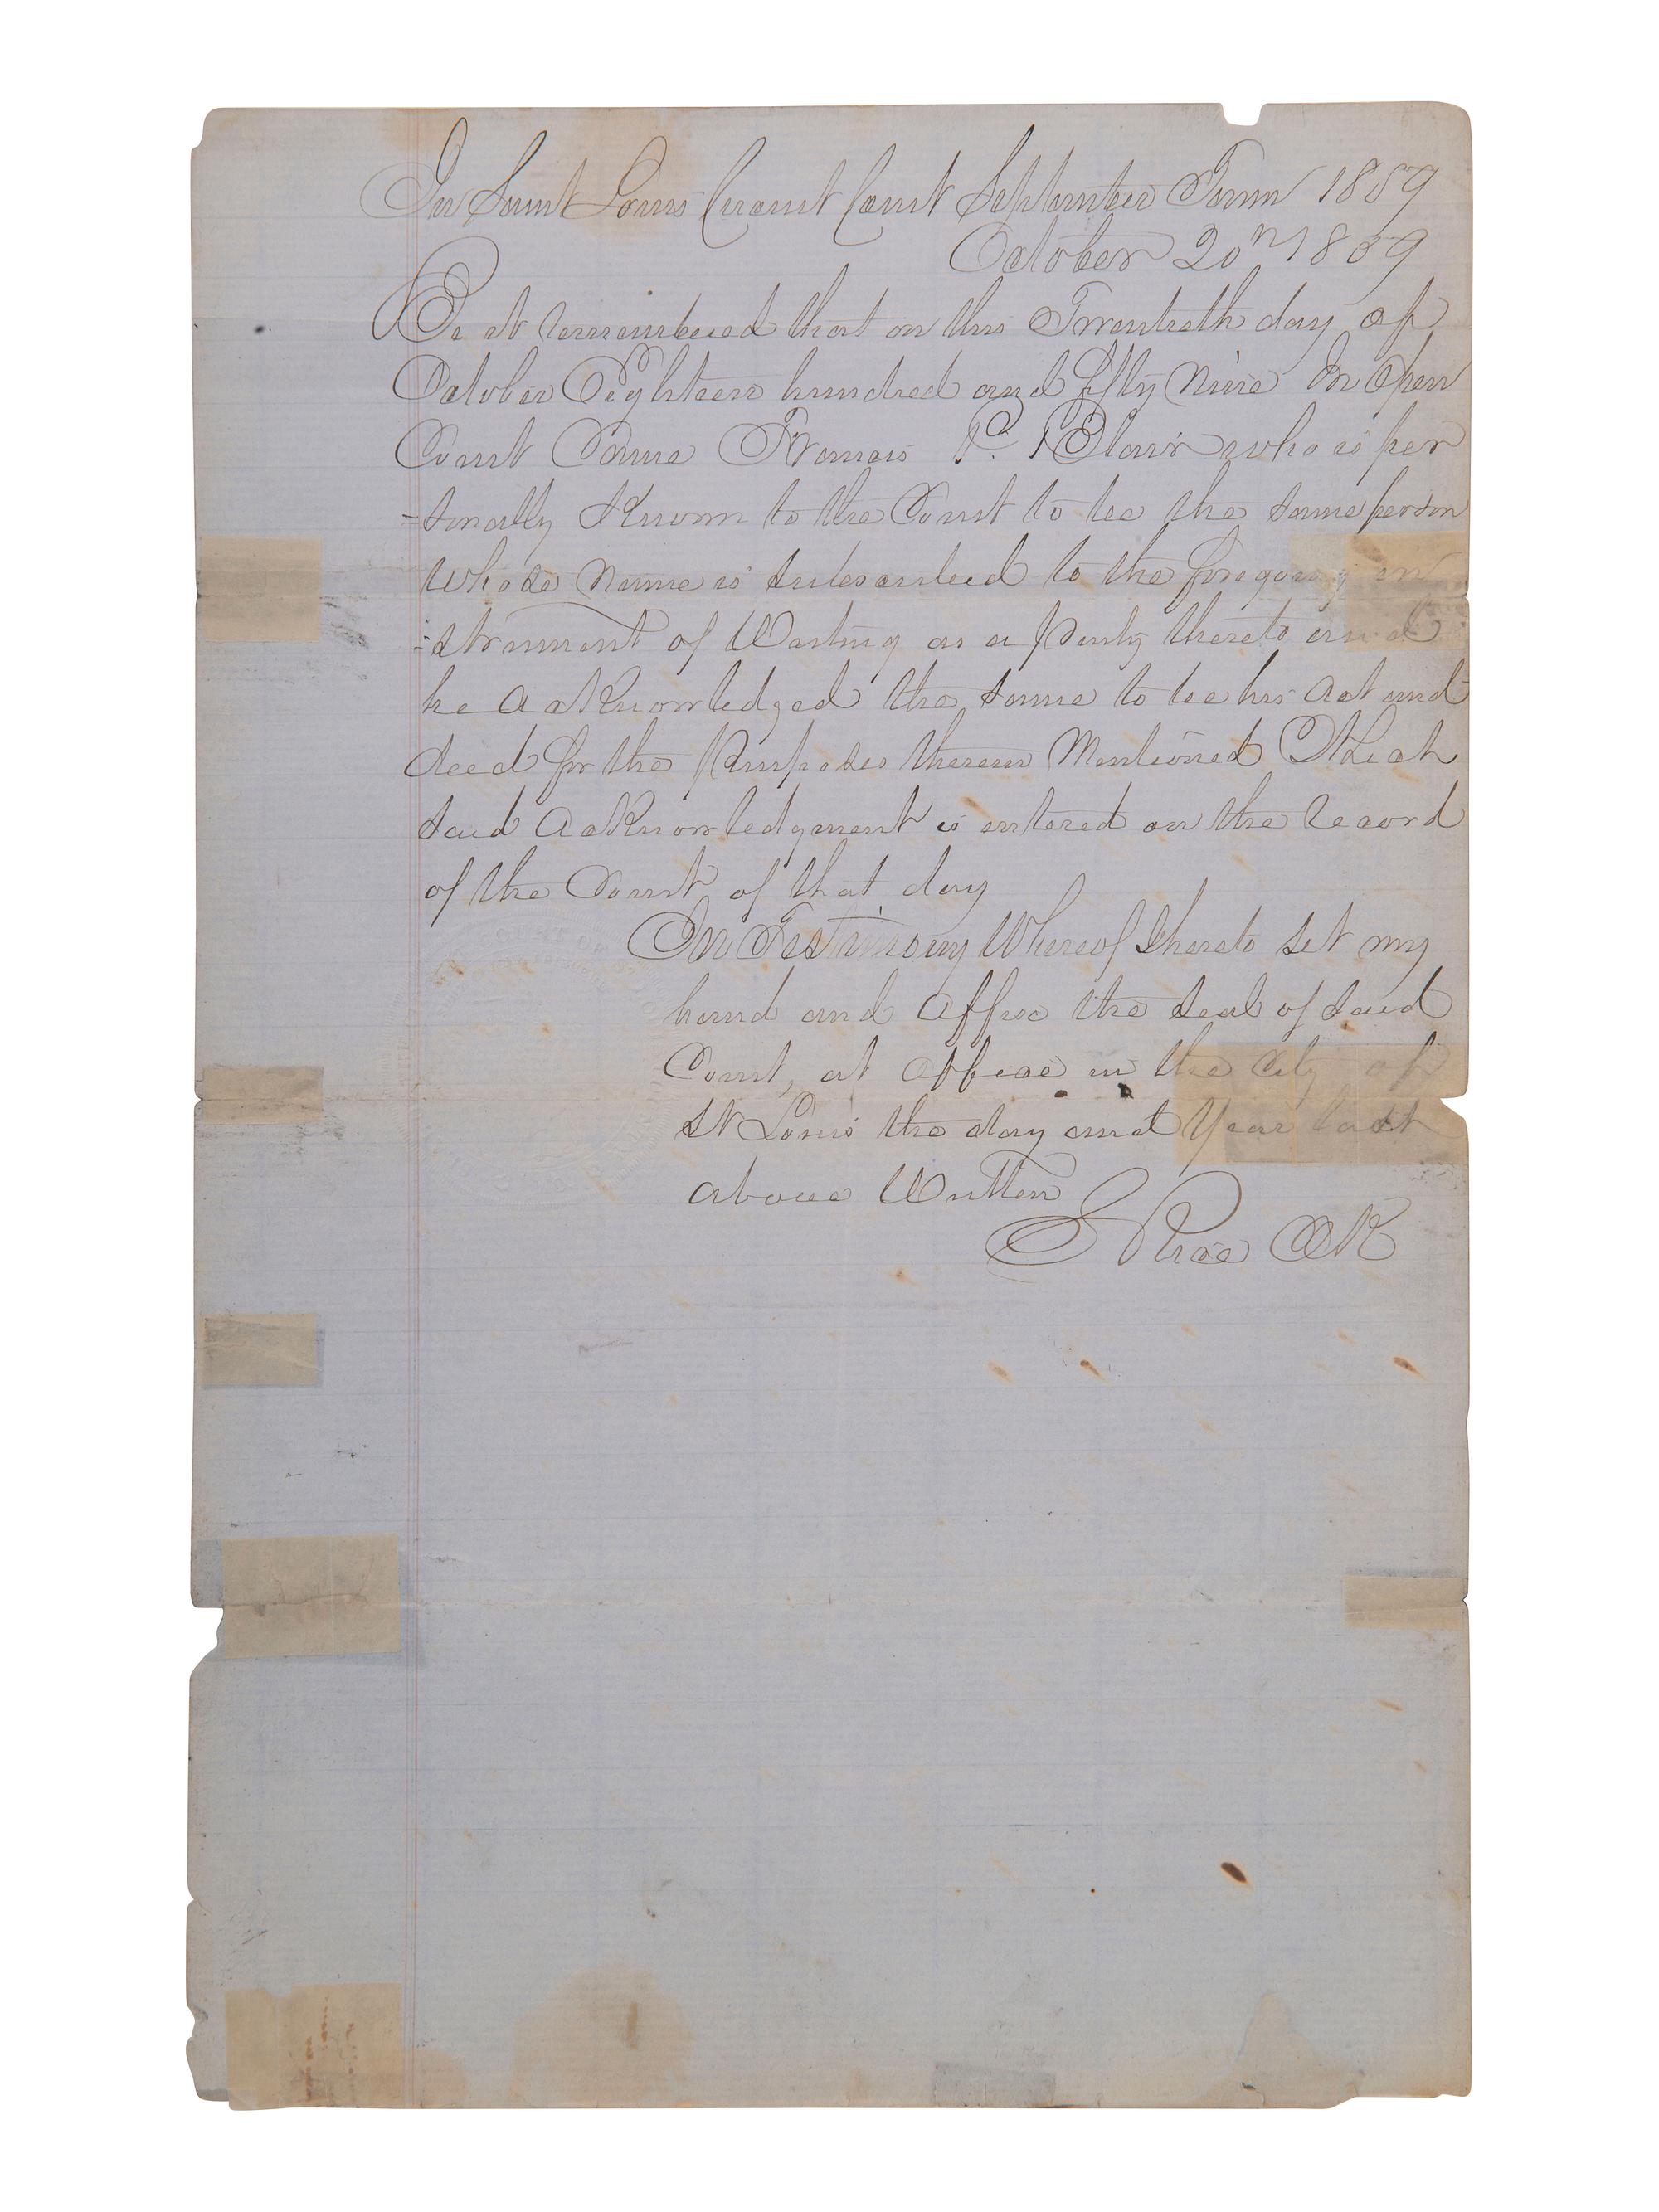 In Saint Louis Circuit Court September Term 1859
October 20th 1859
Be it remembered that on this Twentieth day of
October Eighteen hundred and fifty Nine In Open
Court Came Francis P. Blair who is per
=sonally Known to the Court to be the same person
whose Name is subscribed to the foregoing in
=strument of Writing as a party thereto and
he acknowledged the same to be his act and
deed for the purposes therein Mentioned Which
said acknowledgment is entered on the record
of the Court of that day
In Testimony Whereof I hereto set my
hand and affix the seal of said
Court, at office in the City of
St Louis the day and Year last
above Written
S Rice Clk